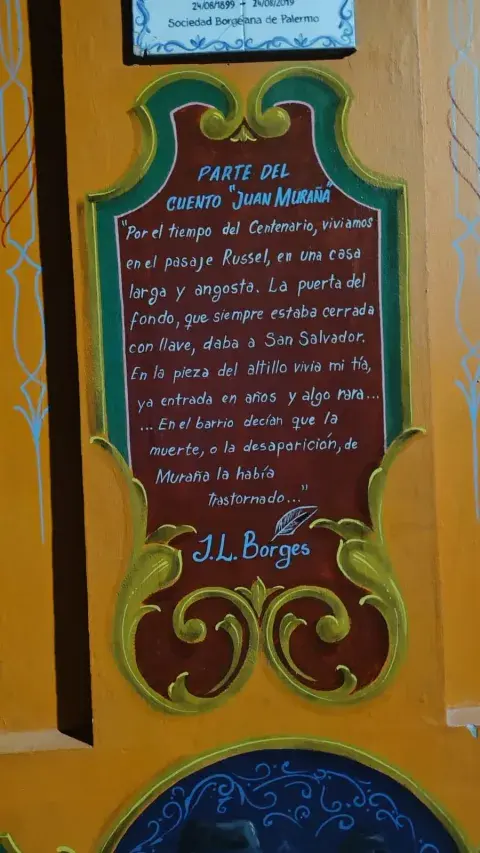 24/08/1899 - 24/08/2019
Sociedad Borgeana de Palermo
PARTE DEL
CUENTO "JUAN MURAÑA"
"Por el tiempo del Centenario, vivíamos
en el pasaje Russel, en una casa
larga y angosta. La puerta del
fondo, que siempre estaba cerrada
con llave, daba a San Salvador.
En la pieza del altillo vivía mi tía,
ya entrada en años y algo rara...
... En el barrio decían que la
muerte, o la desaparición, de
Muraña la había
trastornado..."
J.L. Borges